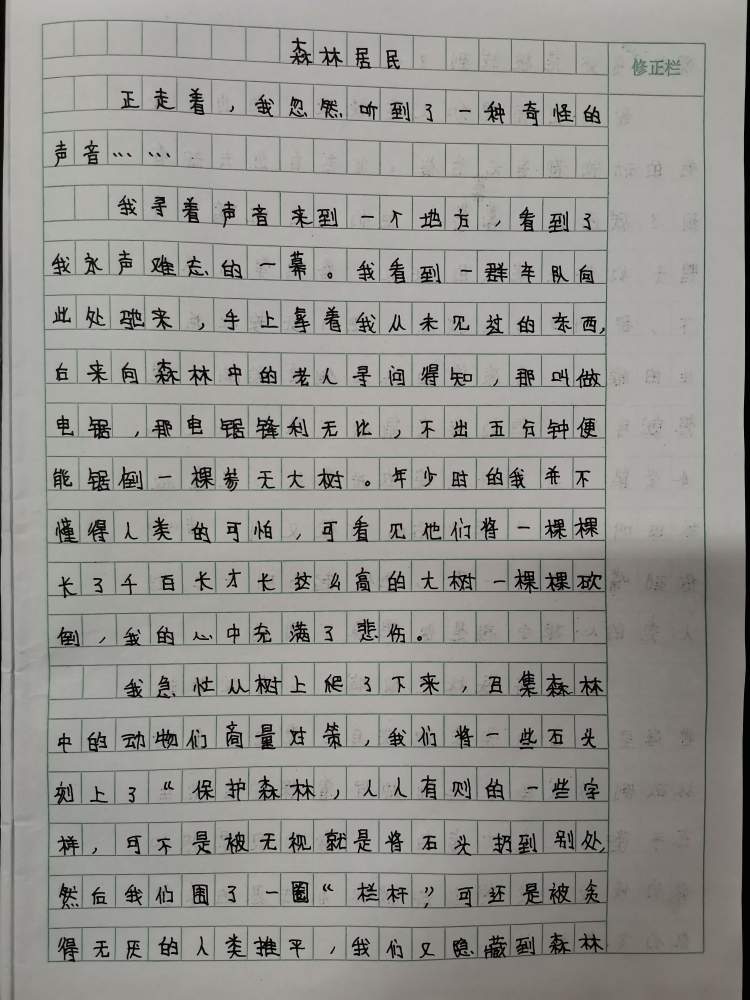 森林居民
修正栏
正走着，我忽然听到了一种奇怪的
声音……
我寻着声音来到一个地方，看到了
我永声难忘的一幕。我看到一群车队向
此处驰来，手上拿着我从未见这的东西，
白来向森林中的老人寻问得知，那叫做
电锯，那电锯锋利无比，不出五分钟便
能锯倒一棵参无大树。年少时的我并不
懂得人类的可怕，可看见他们将一棵棵
长了千百长才长这么高的大树一棵棵砍
倒，我的心中充满了悲伤。
我急忙从树上爬了下来，召集森林
中的动物们商量对策，我们将一些石头
刻上了“保护森林，人人有则的一些字
样，可不是被无视就是将石头扔到别处，
然后我们围了一圈“栏杆”？可还是被贪
得无厌的人类推平，我们又隐藏到森林